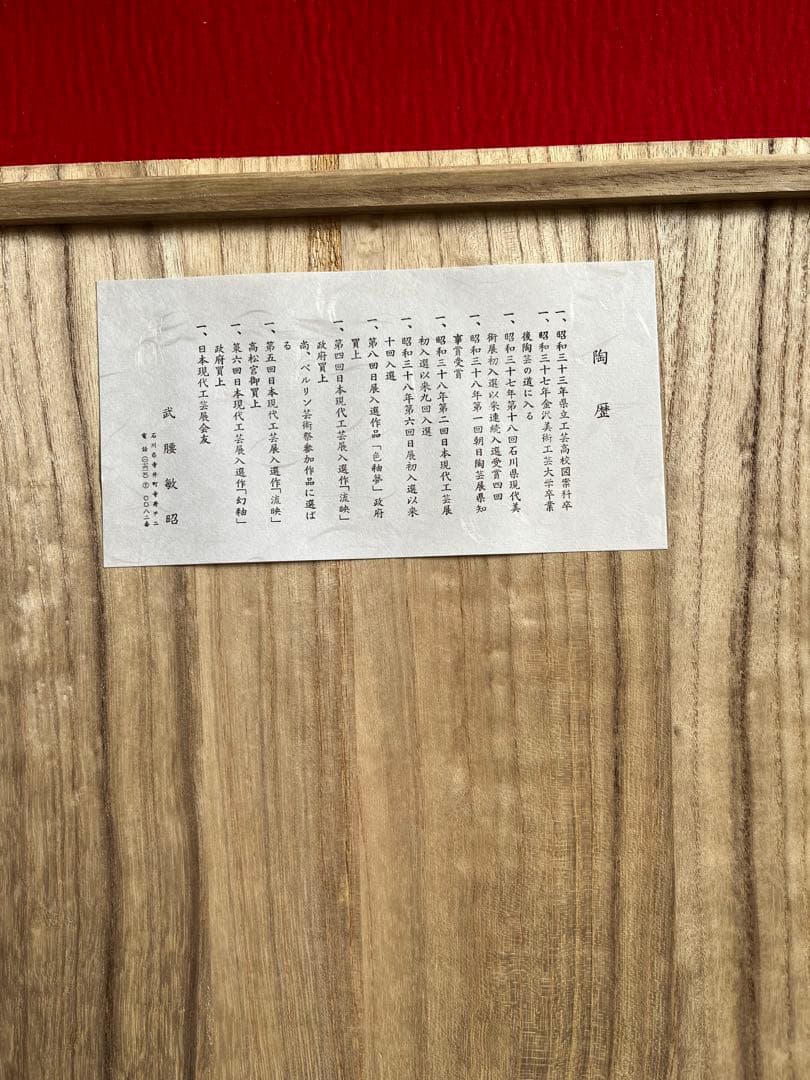 陶歴
一、昭和三十三年県立工芸高校図案科卒
一、昭和三十七年金沢美術工芸大学卒業
後陶芸の道に入る
一、昭和三十七年第十八回石川県現代美
術展初入選以来連続入選受賞四回
一、昭和三十八年第一回朝日陶芸展県知
事賞受賞
一、昭和三十八年第二回日本現代工芸展
初入選以来九回入選
一、昭和三十八年第六回日展初入選以来
十回入選
一、第八回日展入選作品「色釉夢」政府
買上
一、第四回日本現代工芸展入選作「流映」
政府買上
尚、ベルリン芸術祭参加作品に選ば
る
一、第五回日本現代工芸展入選作「流映」
高松宮御買上
一、第六回日本現代工芸展入選作「幻釉」
政府買上
一、日本現代工芸展会友
武腰敏昭
石川県寺井町寺井
電話 〇〇八二番